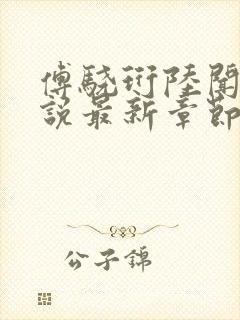 傅骁衍陸聞
說最新章節
公子錦